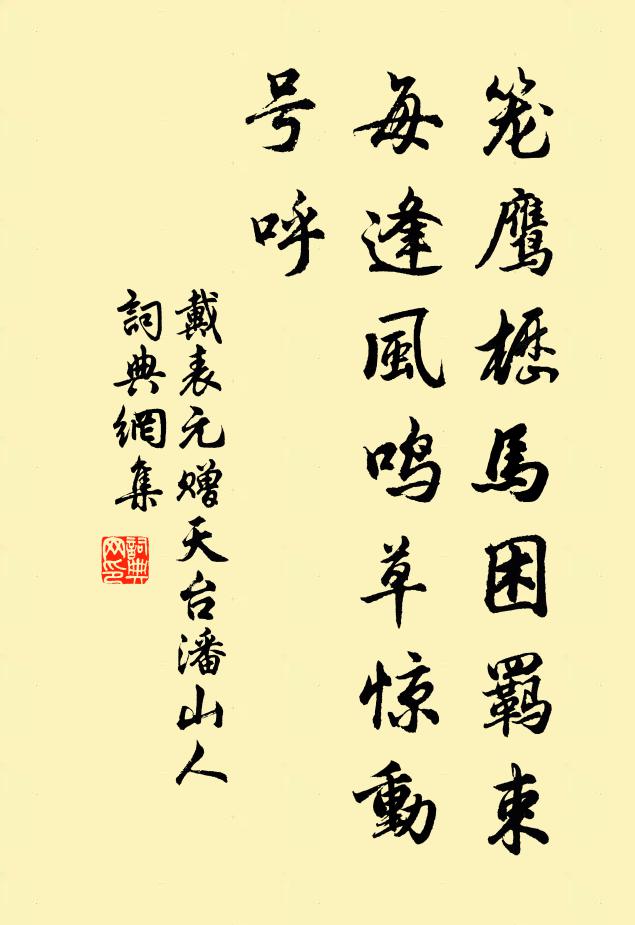 笼鹰枥馬困羈束
每逢風鸣草惊動
号呼
戴表元赠天台潘山人
詞典網集
詞典
网印